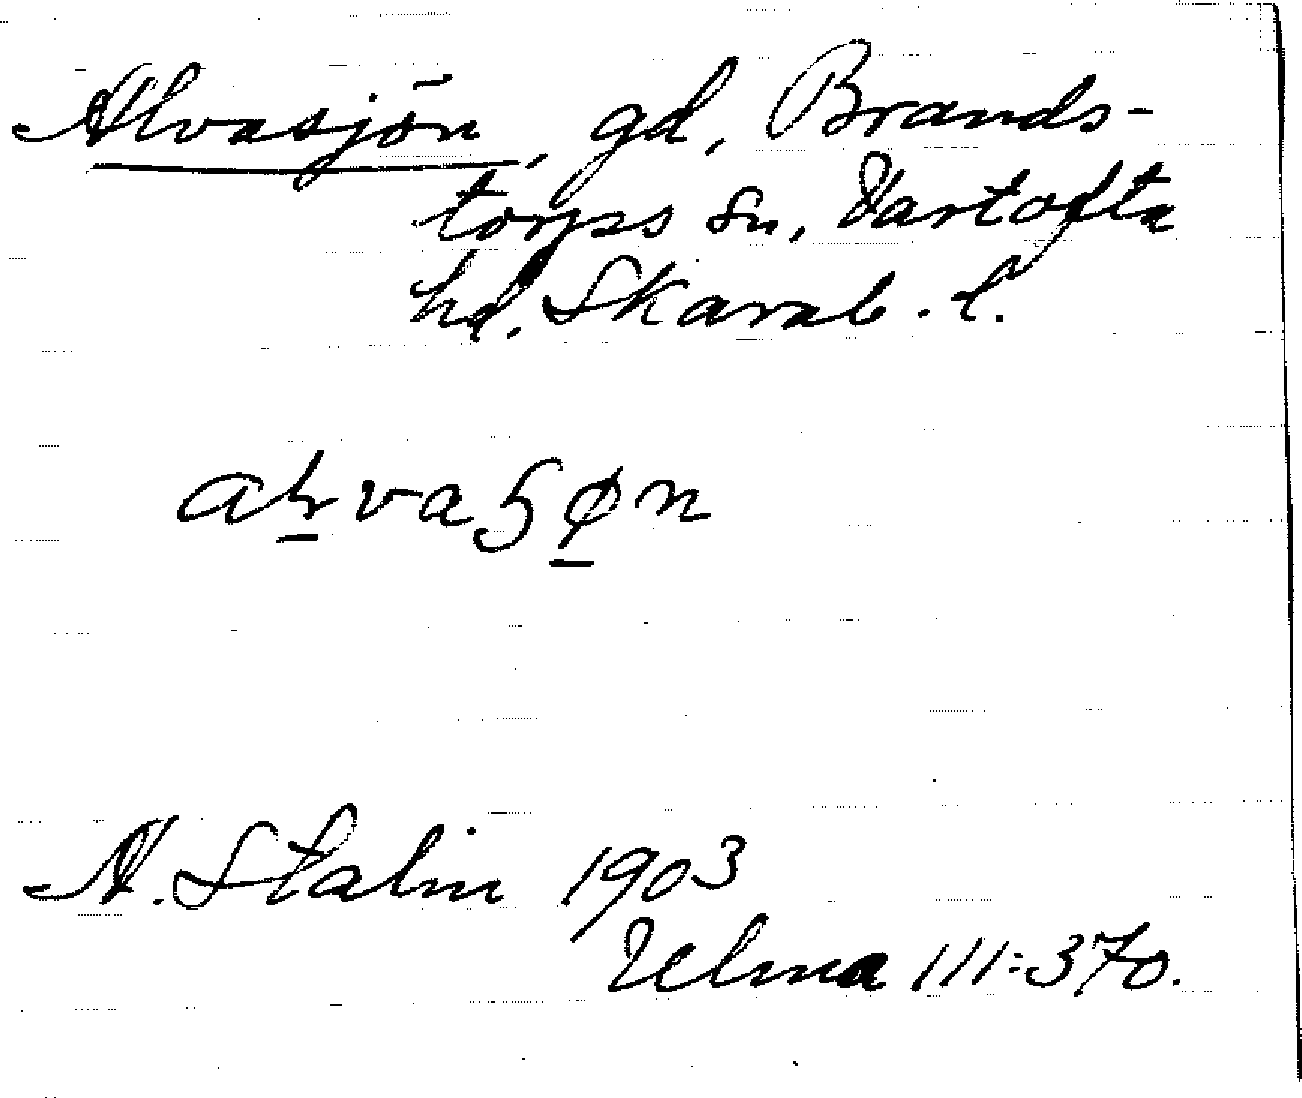 Alvasjön, gd, Brands-
torps sn, Vartofta
hd. Skarab. l.
A. Stalin 1903
Ulma 111:370.